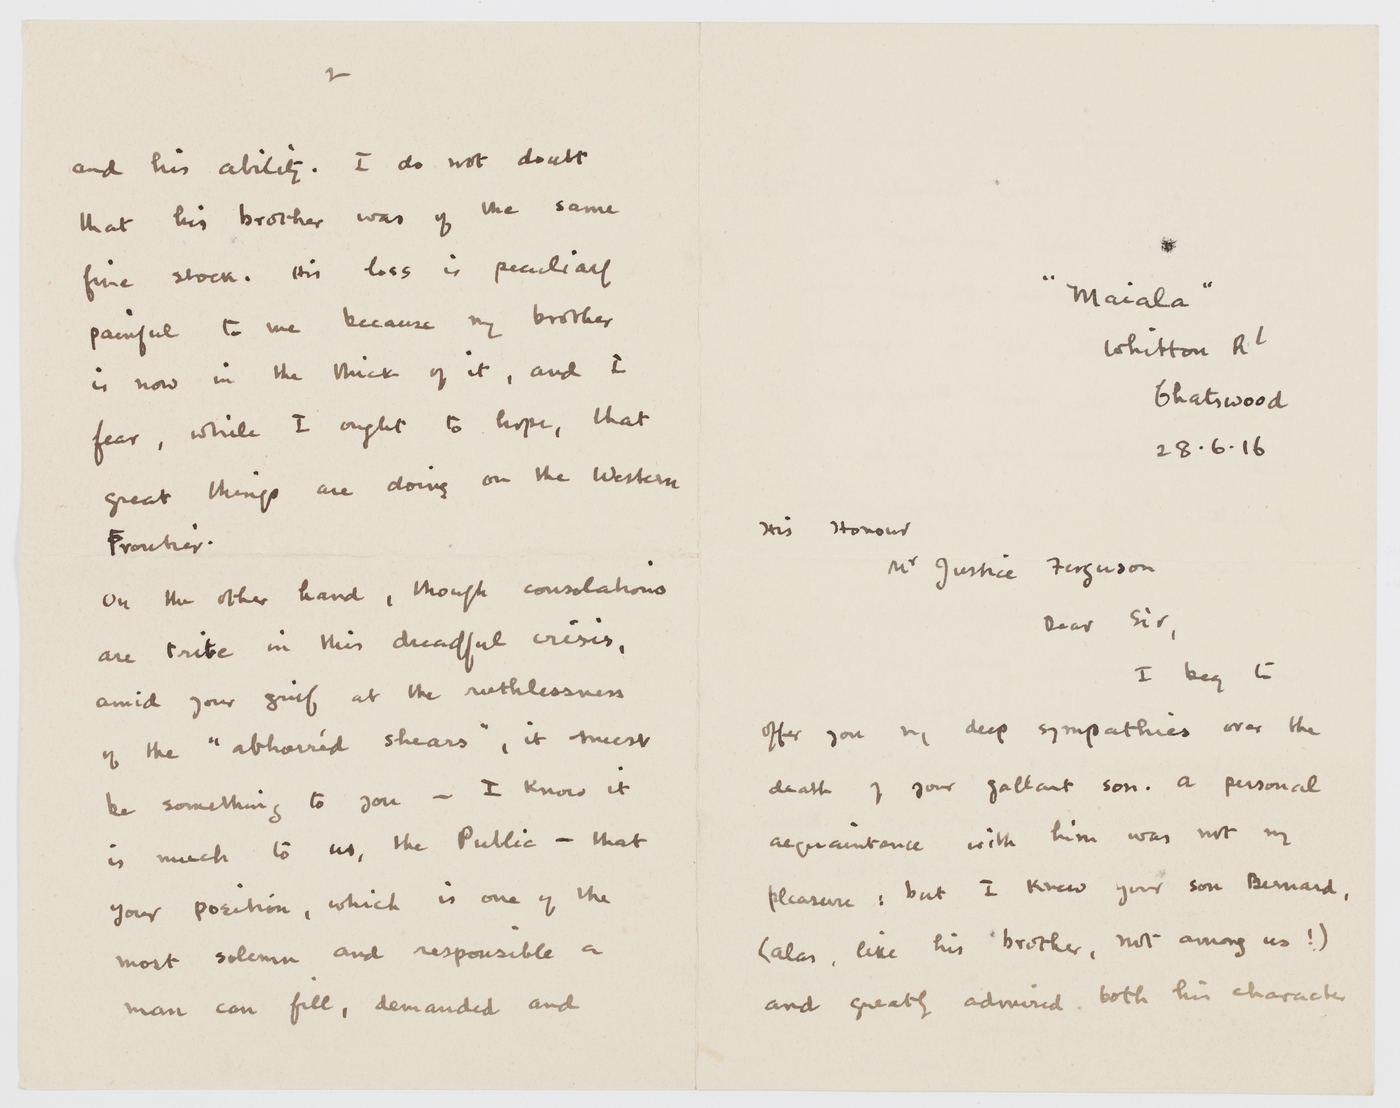 "Maiala"
Whitton Rd
Chatswood
28.6.16
His Honour
Mr Justice Ferguson
Dear Sir,
I beg to
offer you my deep sympathies over the
death of your gallant son. A personal
acquaintance with him was not my
pleasure; but I knew your son Bernard,
(alas, like his brother, not among us!)
and greatly admired both his character
2
and his ability. I do not doubt
that his brother was of the same
fine stock. His loss is peculiarly
painful to me because my brother
is now in the thick of it, and I
fear, while I ought to hope, that
great things are doing on the Western
Frontier.
On the other hand, though consolations
are trite in this dreadful crisis,
amid your grief at the ruthlessness
of the "abhorréd shears", it must
be something to you — I know it
is much to us, the Public — that
your position, which is one of the
most solemn and responsible a
man can fill, demanded and